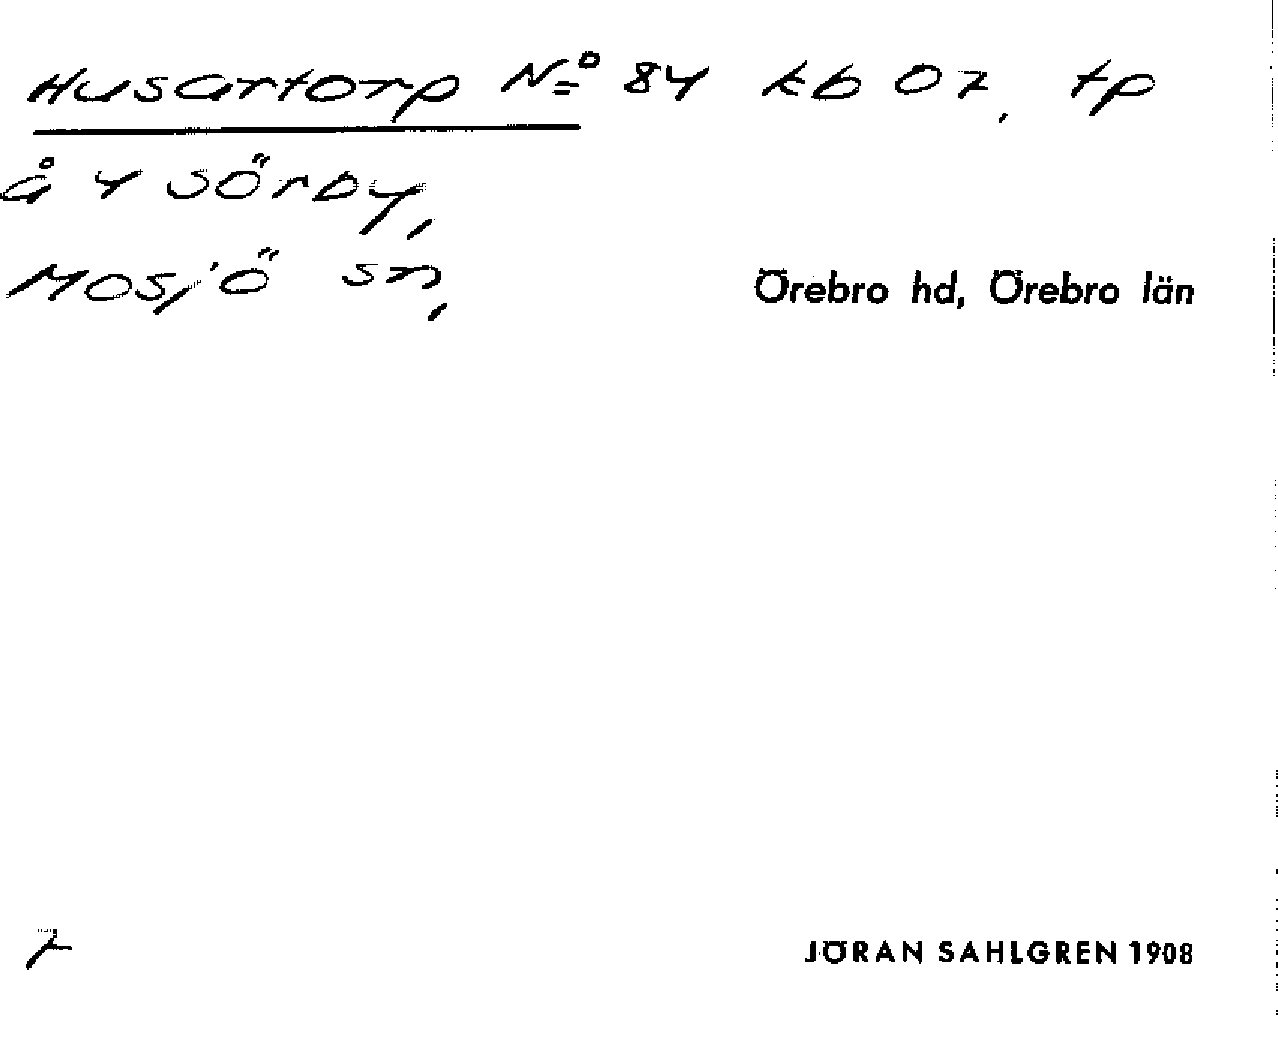 Husartorp Nº 84 kb 07, tp
å 4 Sörby,
Mosjö sn,
Örebro hd, Örebro län
JÖRAN SAHLGREN 1908